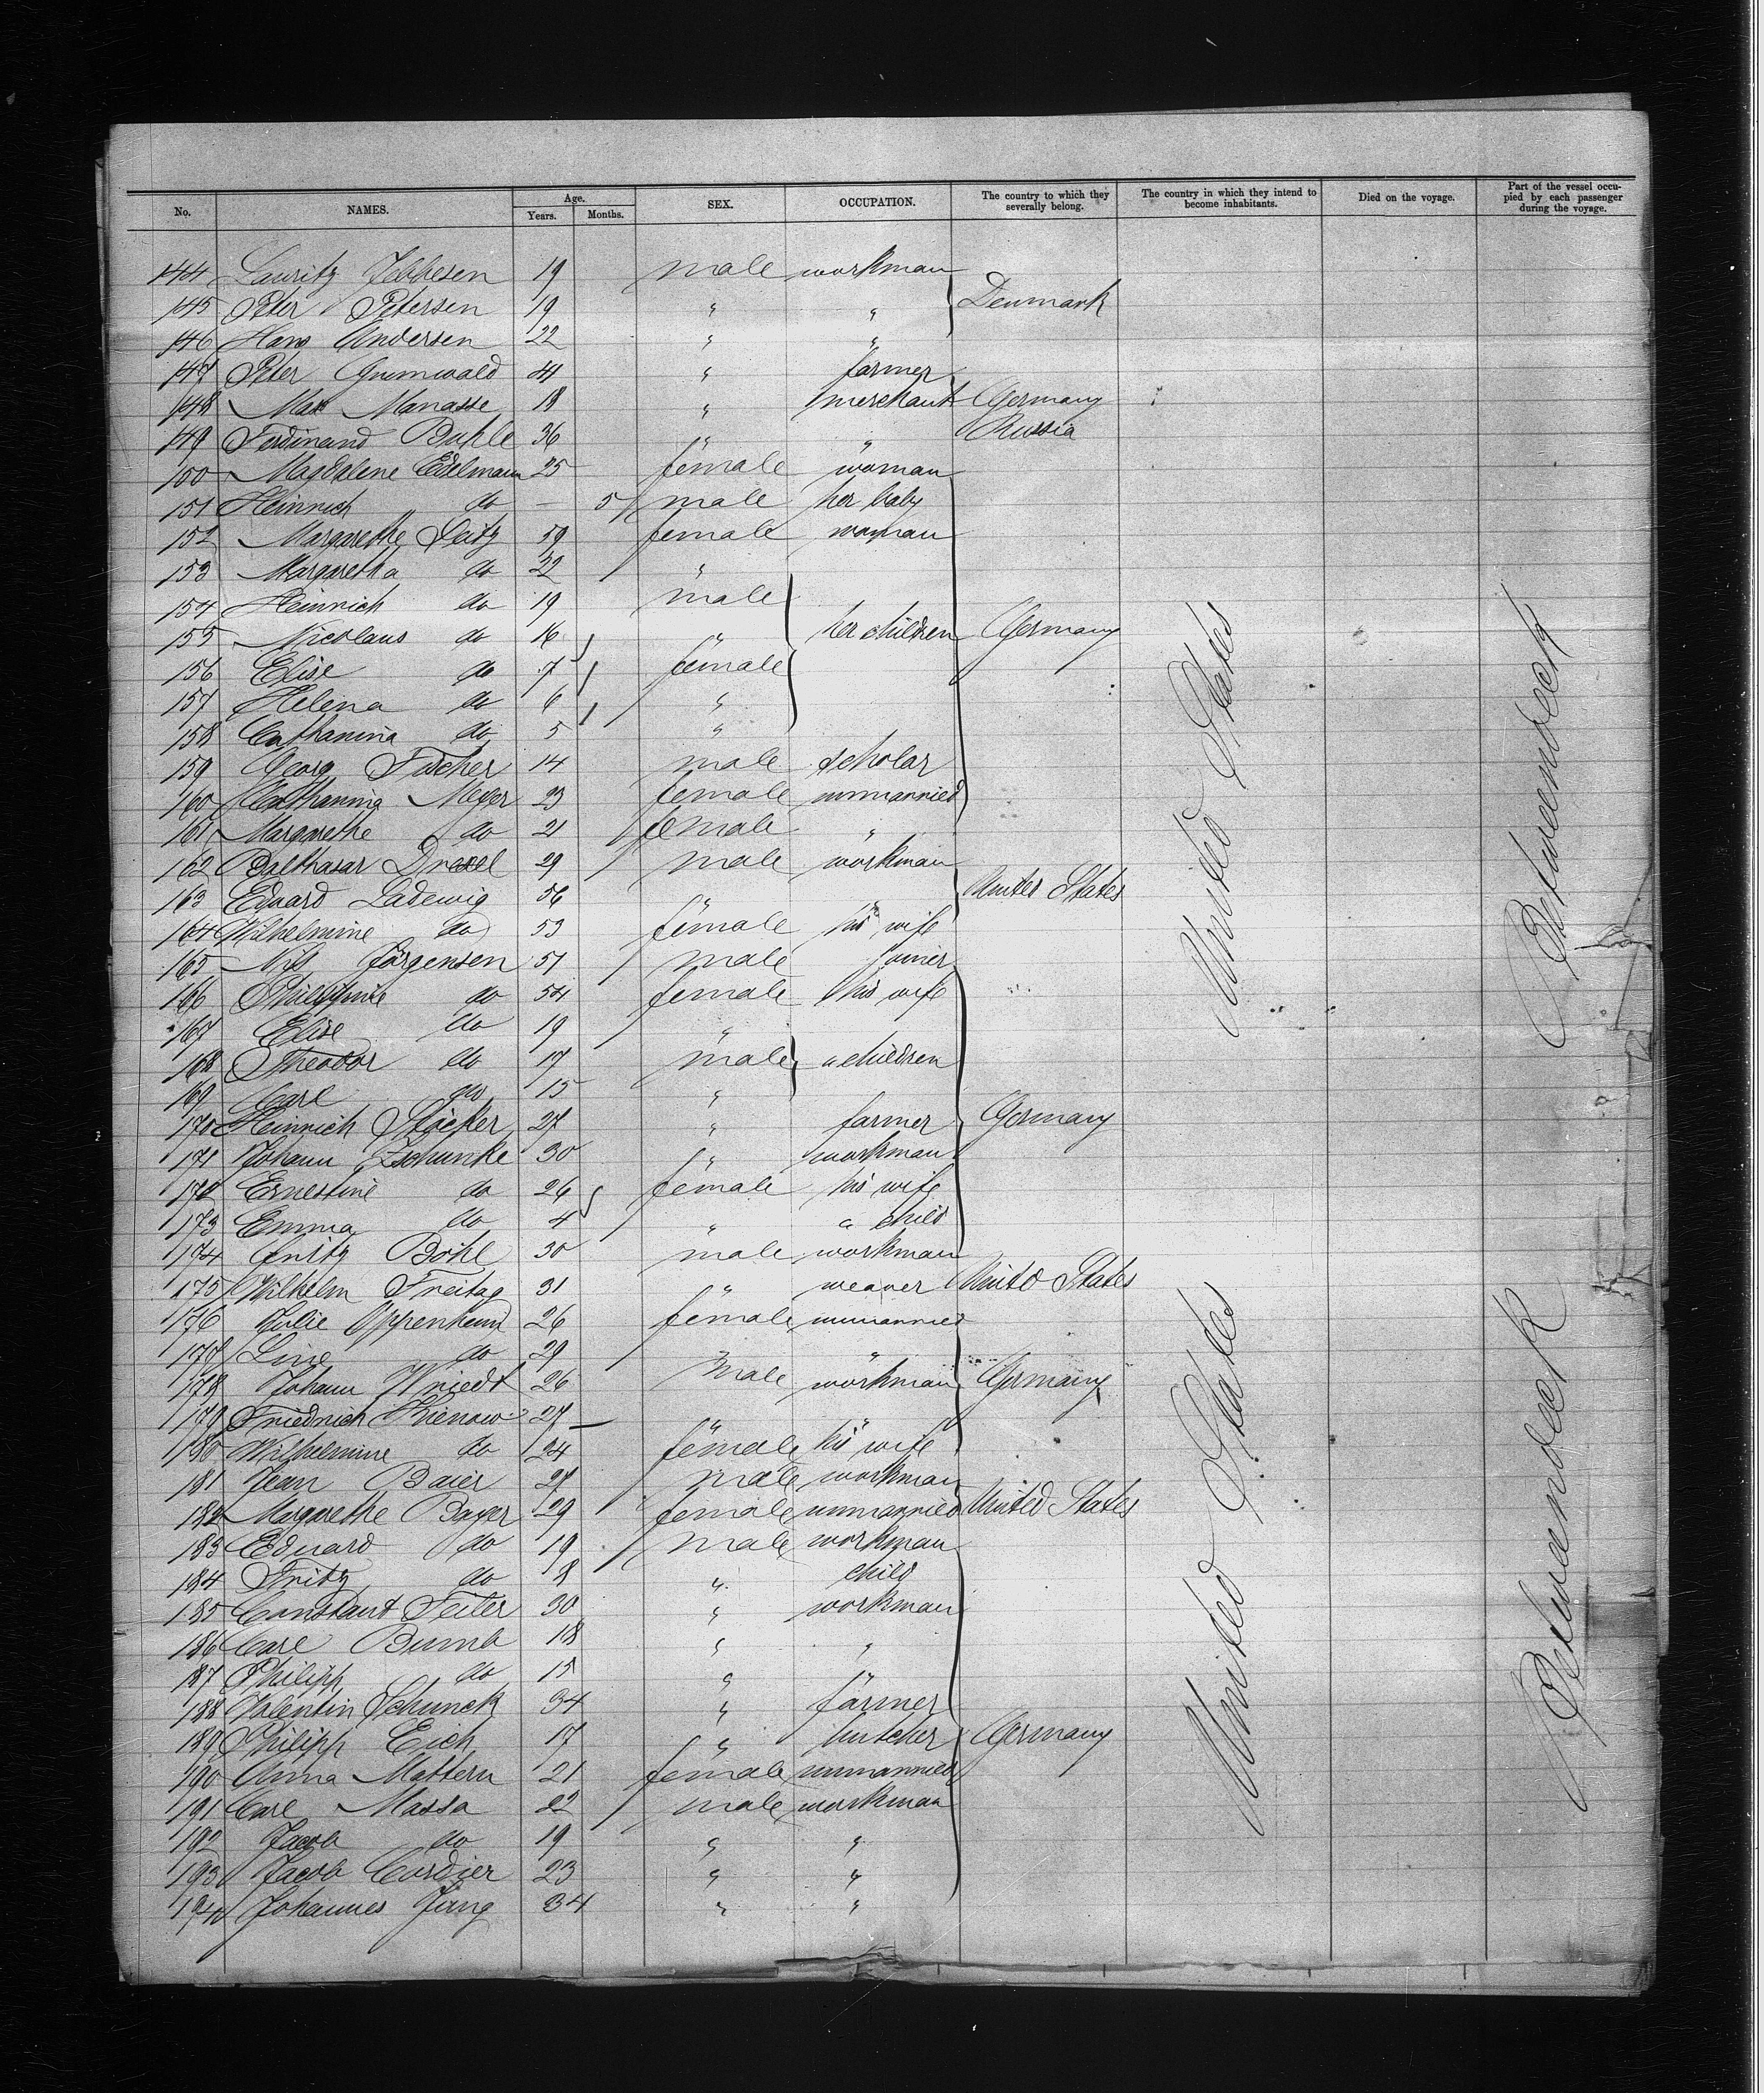 No. NAMES. Age. Years. Months. SEX. OCCUPATION. The country to which they severally belong. The country in which they intend to become inhabitants. Died on the voyage. Part of the vessel occupied by each passenger during the voyage.
144 Lauritz Jebbesen 19 male workman
145 Peter Petersen 19 " " Denmark
146 Hans Andersen 22 " "
147 Peter Grunwald 41 " farmer
148 Max Manasse 18 " merchant Germany
149 Ferdinand Buhle 36 " " Russia
150 Magdalene Edelmann 25 female woman
151 Heinrich do - 5 male her baby
152 Margarethe Seitz 59 female woman
153 Margaretha do 22 "
154 Heinrich do 19 male
155 Nicolaus do 16 " her children Germany
156 Elise do 7 female
157 Helena do 6 "
158 Catharina do 5 "
159 Georg Fischer 14 male scholar
160 Catharina Meyer 23 female unmarried
161 Margarethe do 21 female "
162 Balthasar Drexel 29 male workman
163 Eduard Ladewig 56 " " United States
164 Wilhelmine do 53 female his wife
165 Nils Jörgensen 51 male joiner
166 Philippine do 54 female his wife
167 Elise do 19 "
168 Theodor do 17 male " children
169 Carl do 15 "
170 Heinrich Stöcker 27 " farmer Germany
171 Johann Zschunke 30 " workman
172 Ernestine do 26 female his wife
173 Emma do 4 " " child
174 Fritz Böhl 30 male workman
175 Wilhelm Freitag 31 " weaver United States
176 Julie Oppenheim 26 female unmarried
177 Line do 29 " "
178 Johann Wriedt 26 male workman Germany
179 Friedrich Kienow 27 " "
180 Wilhelmine do 24 female his wife
181 Jean Baier 27 male workman
182 Margarethe Bayer 29 female unmarried United States
183 Eduard do 19 male workman
184 Fritz do 8 " child
185 Constant Feiler 30 " workman
186 Carl Bumb 18 " "
187 Philipp do 15 "
188 Valentin Schunck 34 " farmer
189 Philipp Eich 17 " butcher Germany
190 Anna Mattern 21 female unmarried
191 Carl Massa 22 male workman
192 Jacob do 19 " "
193 Jacob Cordier 23 " "
194 Johannes Jung 34 " "
United States
Betweendeck
United States
Betweendeck